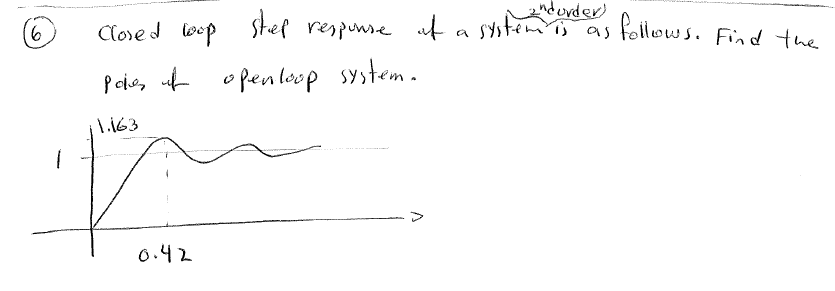 6 Closed loop step response of a 2nd order system is as follows. Find the
poles of openloop system.
1.163
1
0.42